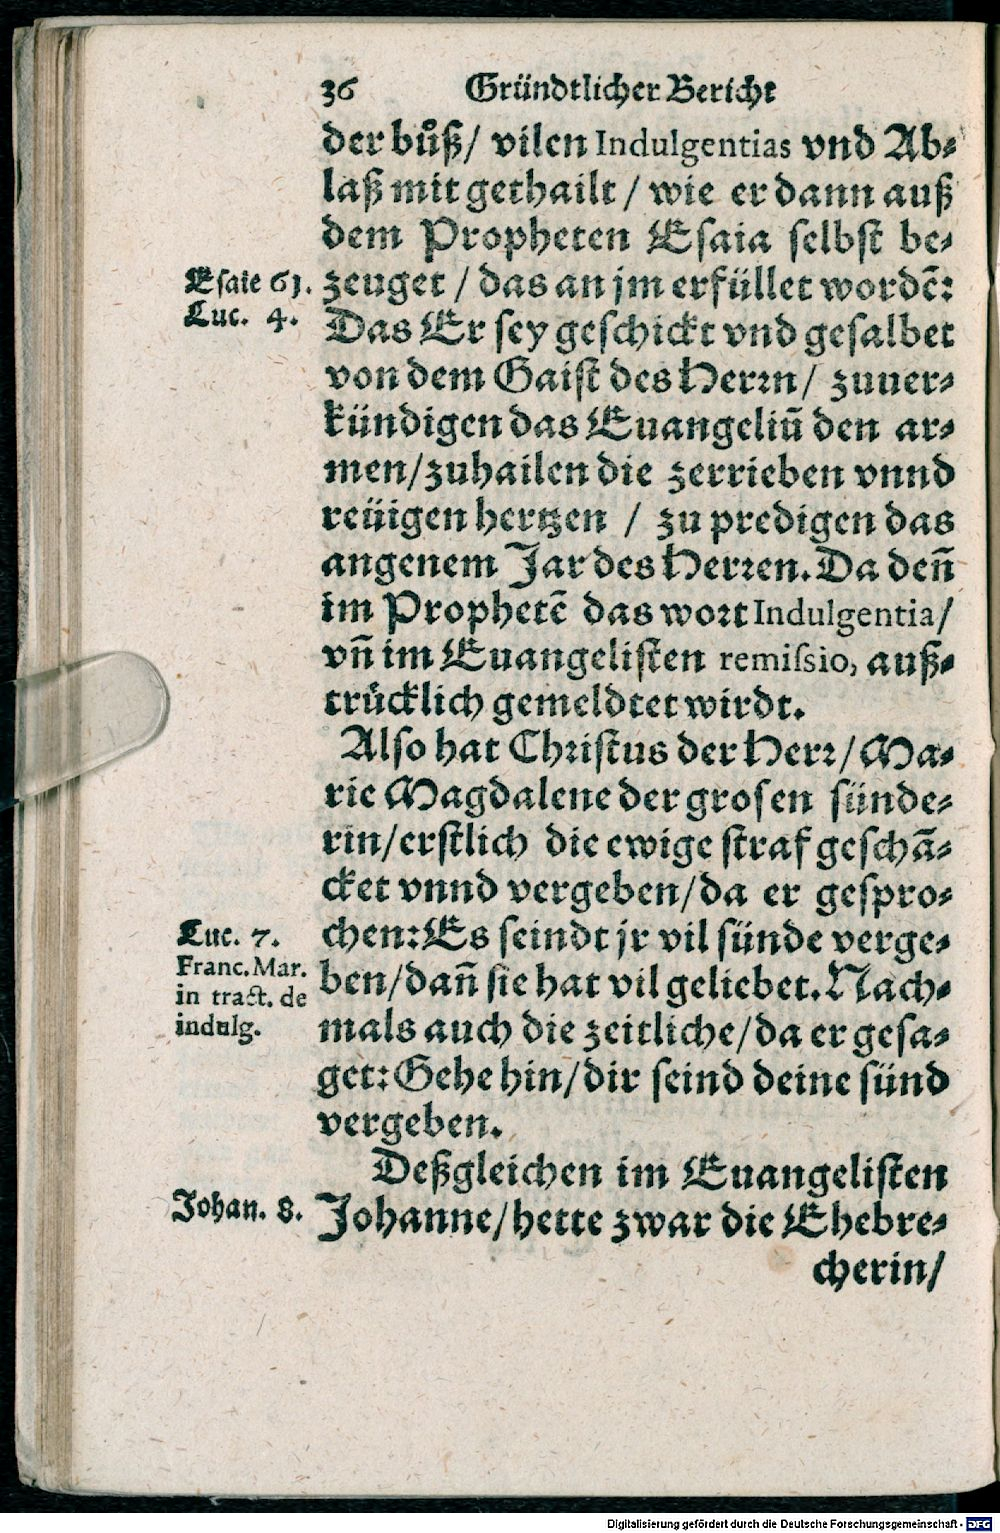 36 Gründtlicher Bericht
der bůß/ vilen Indulgentias vnd Ab-
laß mit gethailt / wie er dann auß
dem Propheten Esaia selbst be-
Esaie 61.
zeuget / das an jm erfüllet wordē:
Luc. 4.
Das Er sey geschickt vnd gesalbet
von dem Gaist des Herrn/ zuuer-
kündigen das Euangeliū den ar-
men/zuhailen die zerrieben vnnd
reüigen hertzen / zu predigen das
angenem Jar des Herren. Da deñ
im Prophetē das wort Indulgentia/
vñ im Euangelisten remissio, auß-
trücklich gemeldtet wirdt.
Also hat Christus der Herr/Ma-
rie Magdalene der grosen sünde-
rin/erstlich die ewige straf geschā-
cket vnnd vergeben/da er gespro-
Luc. 7.
chen: Es seindt jr vil sünde verge-
Franc. Mar.
ben/dañ sie hat vil geliebet. Nach-
in tract. de
indulg.
mals auch die zeitliche/da er gesa-
get: Gehe hin/dir seind deine sünd
vergeben.
Deßgleichen im Euangelisten
Johan. 8.
Johanne/hette zwar die Ehebre-
cherin/
Digitalisierung gefördert durch die Deutsche Forschungsgemeinschaft - DFG